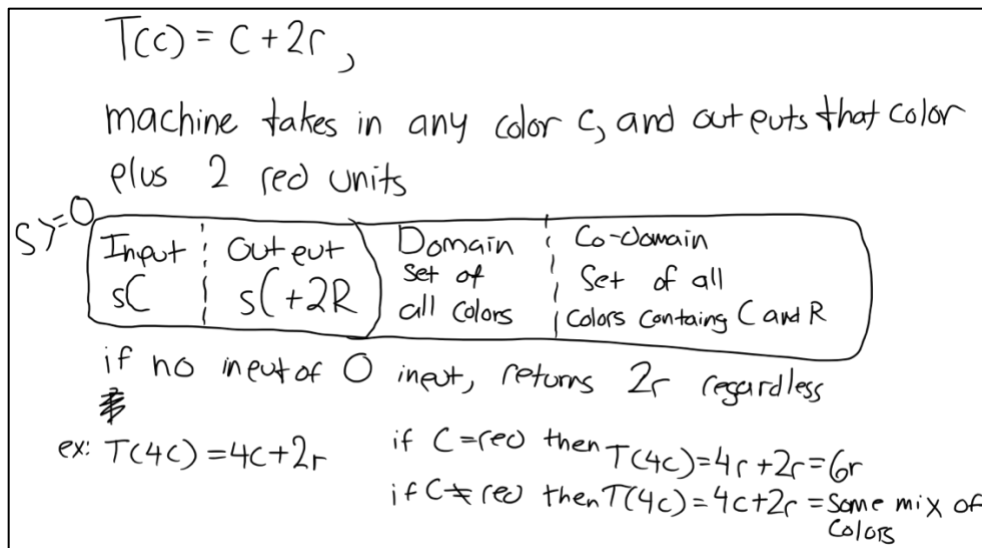 T(c) = C + 2r,
machine takes in any color c, and outputs that color
plus 2 red units
S>=0
Input Output Domain Co-domain
sC sC+2R Set of all colors Set of all colors containg C and R
if no input of 0 input, returns 2r regardless
ex: T(4c) = 4c+2r
if C=red then T(4c)=4r+2r=6r
if C≠red then T(4c)=4c+2r=Some mix of
colors